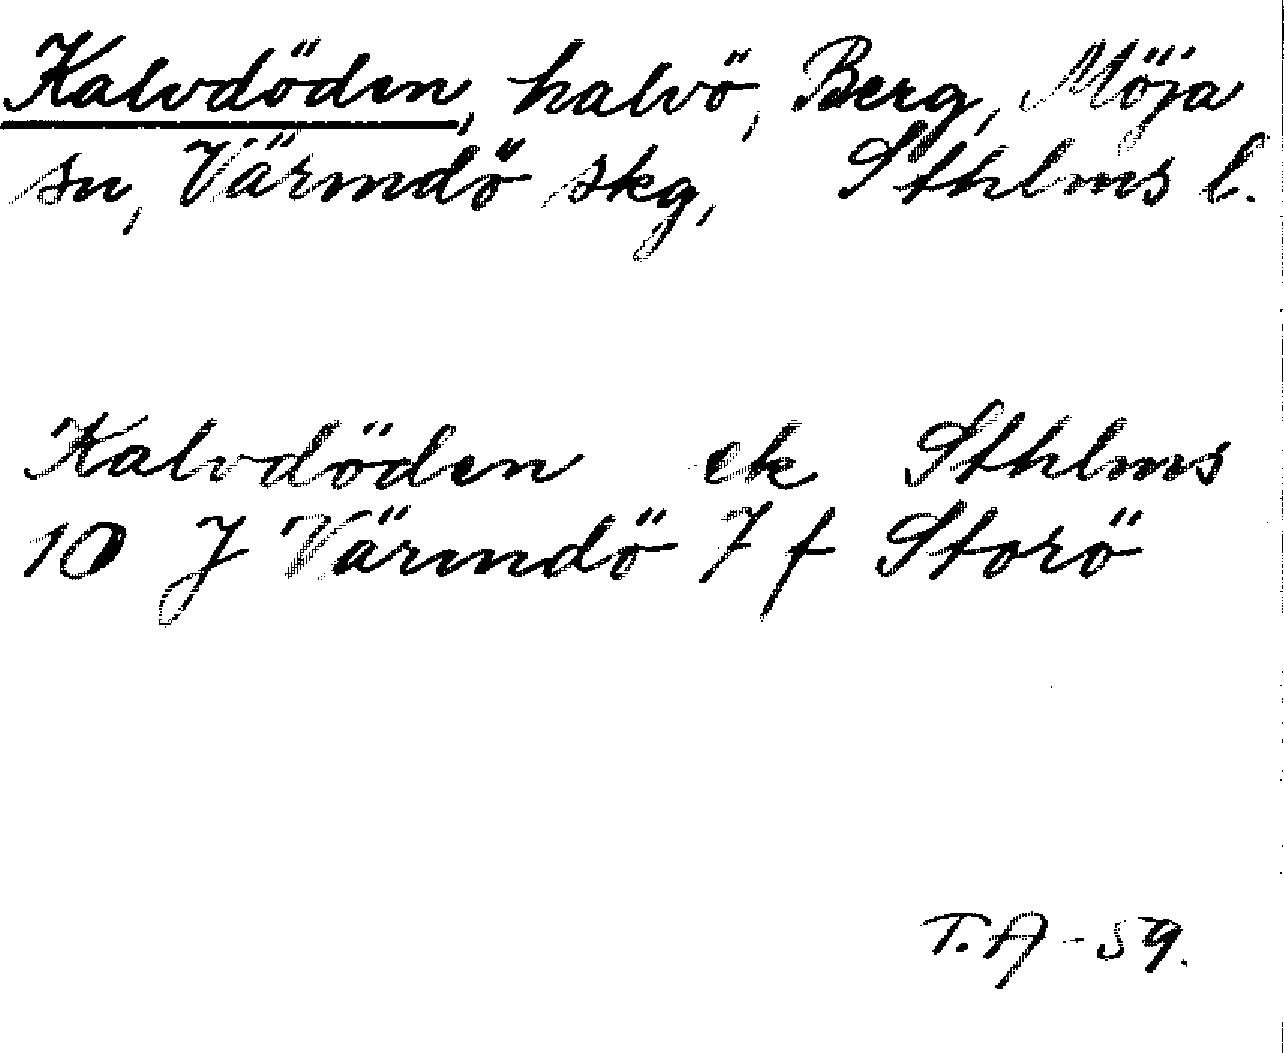 Kalvdöden, halvö, Berg, Möja
sn, Värmdö skg, Sthlms l.
Kalvdöden ek Sthlms
10 J Värmdö 7 f Storö
T.A -59.